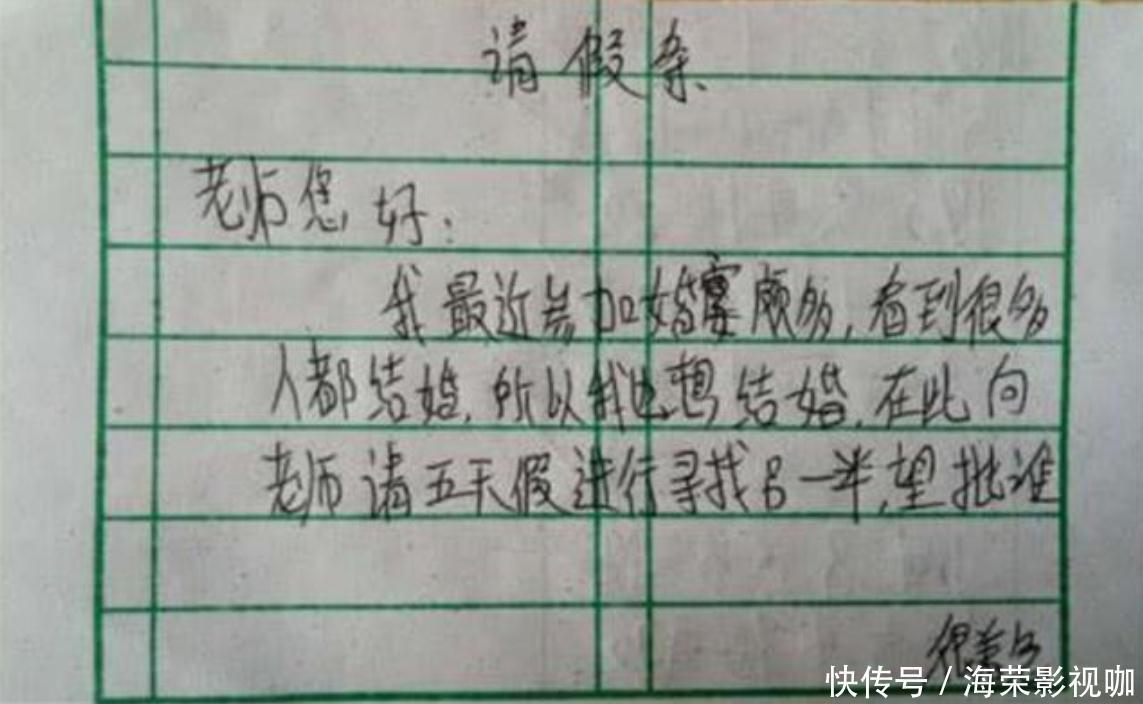 请假条
老师您好：
我最近参加婚宴颇多，看到很多
人都结婚，所以我也想结婚，在此向
老师请五天假进行寻找另一半，望批准
快传号 / 海荣影视咖